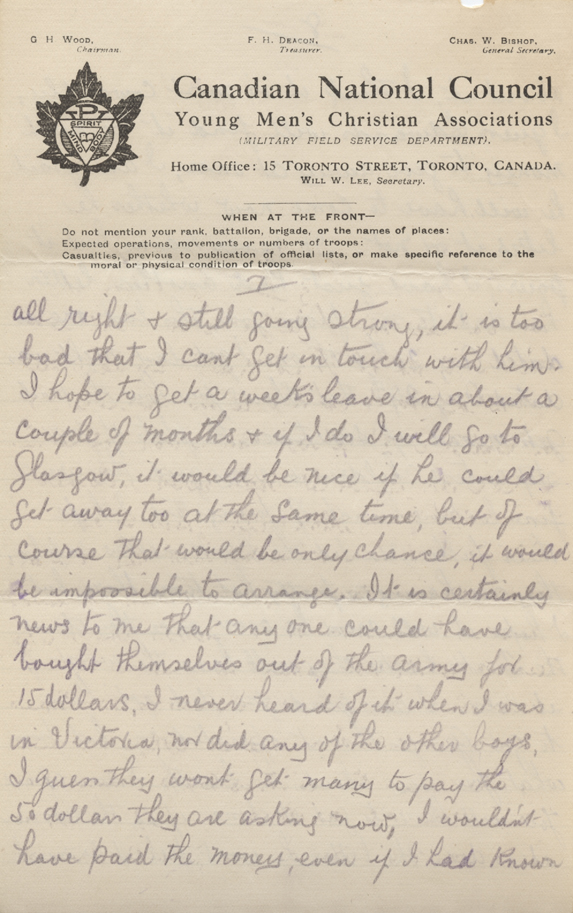 G H WOOD,
Chairman.
F. H. DEACON,
Treasurer.
CHAS. W. BISHOP,
General Secretary.
SPIRIT
MIND
BODY
Canadian National Council
Young Men's Christian Associations
(MILITARY FIELD SERVICE DEPARTMENT).
Home Office: 15 TORONTO STREET, TORONTO, CANADA.
WILL W. LEE, Secretary.
WHEN AT THE FRONT—
Do not mention your rank, battalion, brigade, or the names of places:
Expected operations, movements or numbers of troops:
Casualties, previous to publication of official lists, or make specific reference to the
moral or physical condition of troops
all right & still going strong, it is too
bad that I cant get in touch with him.
I hope to get a weeks leave in about a
couple of months & if I do I will go to
Glasgow, it would be nice if he could
get away too at the same time, but of
course that would be only chance, it would
be impossible to arrange. It is certainly
news to me that any one could have
bought themselves out of the army for
15 dollars, I never heard of it when I was
in Victoria, nor did any of the other boys,
I guess they wont get many to pay the
50 dollars they are asking now, I wouldn't
have paid the money, even if I had known